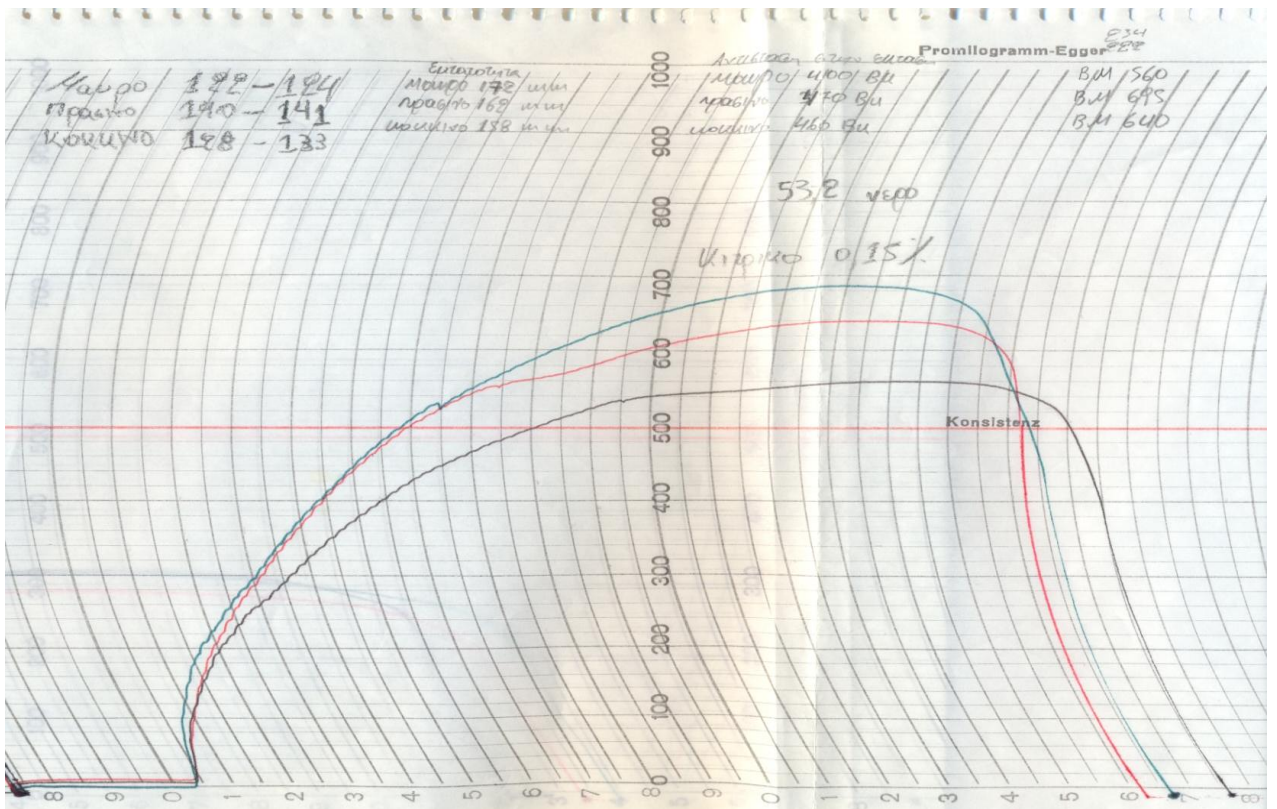 Promilogramm-Egger
Μαυρο 122-124
Πρασινο 140-141
Κοκκινο 128-133
Εκτατοτητα
Μαυρο 172 mm
πρασινο 169 mm
κοκκινο 158 mm
Αντισταση στην εκταση
Μαυρο 400 Bu
πρασινο 470 Bu
κοκκινο 460 Bu
BM 560
BM 695
BM 640
53,2 νερο
Κιτρικο 0,15%
Konsistenz
1000
900
800
700
600
500
400
300
200
100
0
8 9 0 1 2 3 4 5 6 7 8 9 0 1 2 3 4 5 6 7 8